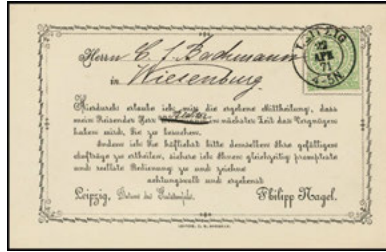 LEIPZIG
22
APR
71
4-5N
Herrn C. J. Bachmann
in Wiesenburg.
Hierdurch erlaube ich mir die ergebene Mittheilung, dass
mein Reisender Herr in nächster Zeit das Vergnügen
haben wird, Sie zu besuchen.
Indem ich Sie höflichst bitte demselben Ihre gefälligen
Aufträge zu ertheilen, sichere ich Ihnen gleichzeitig prompteste
und reellste Bedienung zu und zeichne
achtungsvoll und ergebenst
Leipzig, Datum des Poststempels. Philipp Nagel.